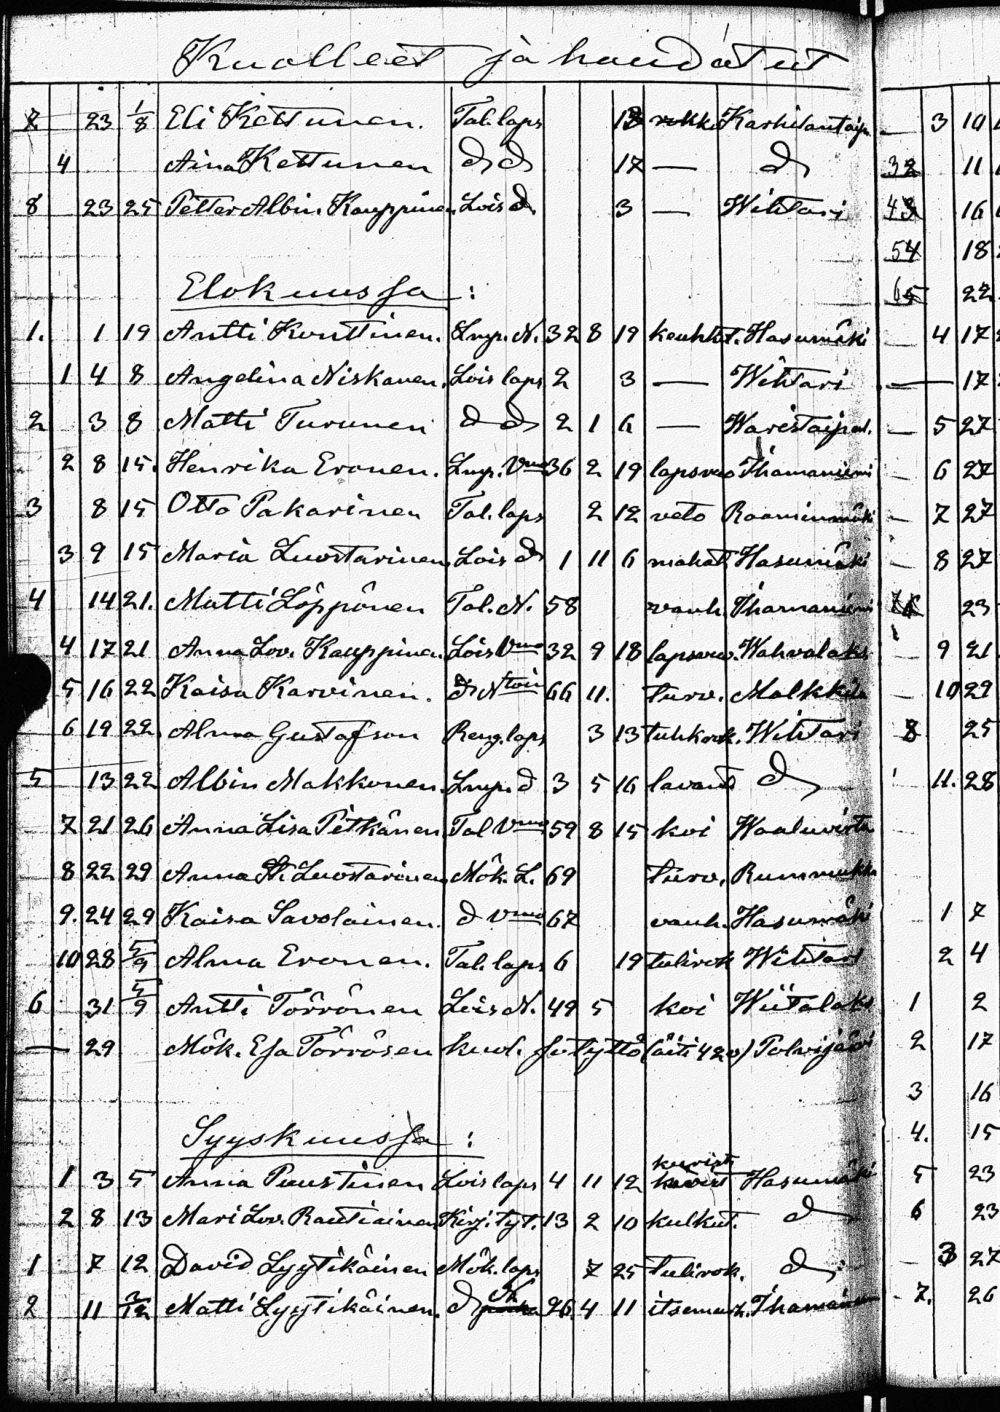 Kuolleet ja haudatut
7 23 1/8 Eli Kettunen. Tal. laps 12 rokko Karhitantaip. 3 10
4 Aina Kettunen d d 17 — d 32 11
8 23 25 Petter Albin Kauppinen Lois d 3 — Wihtari 43 16
54 18
65 22
Elokuussa :
1. 1 19 Antti Konttinen. Lmp. N. 32 8 19 keuhkot. Hasumäki 4 17
1 4 8 Angelina Niskanen. Lois laps 2 3 — Wihtari — 17
2 3 8 Matti Turunen d d 2 1 6 — Waristaipal. — 5 27
2 8 15. Henrika Eronen. Lmp. Vmo 36 2 19 lapsvuo Thamaniemi — 6 27
3 8 15 Otto Pakarinen Tal. laps 2 12 veto Raaminmäki — 7 27
3 9 15 Maria Luostarinen Lois d 1 11 6 mahat. Hasumäki — 8 27
4 14 21. Matti Löppönen Tal. N. 58 vanh. Thamaniemi 23
4 17 21 Anna Lov. Kauppinen. Lois Vmo 32 9 18 lapsvuo. Wahvalaks 9 21
5 16 22 Kaisa Karvinen. d Ntoin 66 11. turv. Malkkila 10 29
6 19 22 Alma Gustafson Reng. laps 3 13 tuhkrok. Wihtari 8 25
5 13 22 Albin Makkonen. Lmp. d 3 5 16 lavant d 11. 28
7 21 26 Anna Lisa Pitkänen Tal Vmo 59 8 15 koi Waaluvirta
8 22 29 Anna St. Luostarinen Mök. L. 69 turv. Rummukka
9. 24 29 Kaisa Savolainen. d vmo 67 vanh. Hasumäki 1 7
10 28 5/9 Alma Eronen. Tal. laps 6 19 tulirok Wihtari 2 4
6 31 5/9 Antti Törrönen Lois N. 49 5 koi Wiitalaks 1 2
— 29 Mök. Esa Törrösen kuol. s. tyttö (äiti 42 v) Polvijärvi 2 17
3 16
4. 15
Syyskuussa :
1 3 5 Anna Puustinen Lois laps 4 11 12 kurist Hasumäki 5 23
2 8 13 Mari Lov. Rautiainen Kirj. tyt. 13 2 10 kulkut. d 6 23
1 7 12 David Lyytikäinen Mök. laps 7 25 tulirok. d — 3 27
2 11 Matti Lyytikäinen. d 26. 4 11 itsemurh. Thamaniemi 7. 26